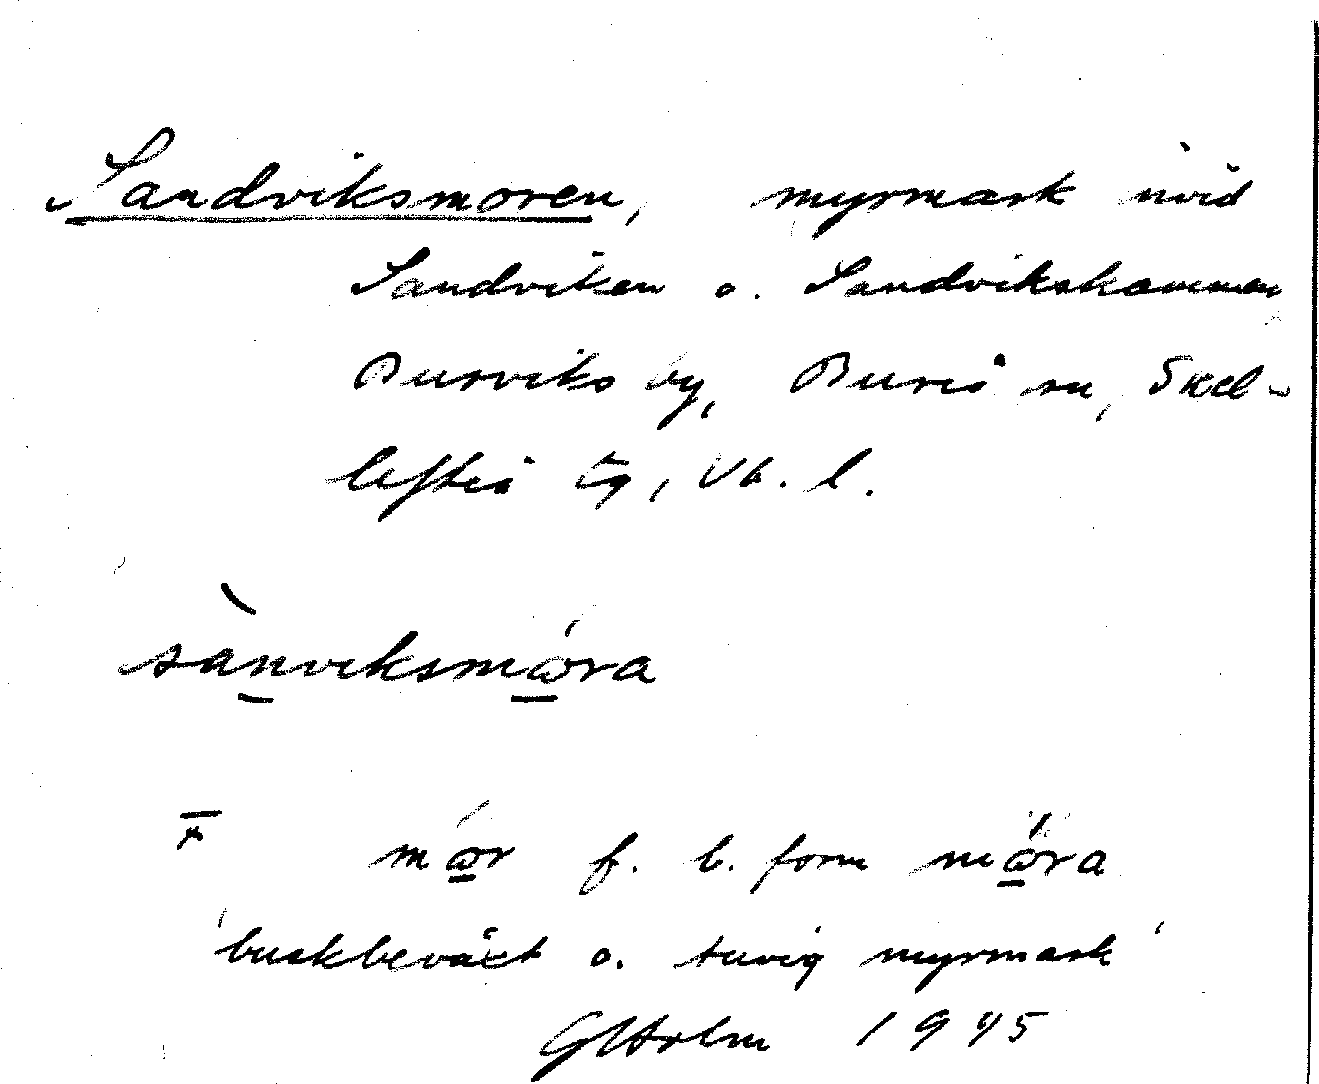 Sandviksmoren, myrmark invid
Sandviken o. Sandvikskammen
Bursviks by, Bureå sn, Skel-
lefteå tg, Vb. l.
sànviksmώ̲ra
mώ̲r f. b. form mώ̲ra
'buskbeväxt o. tuvig myrmark'
G Holm 1945